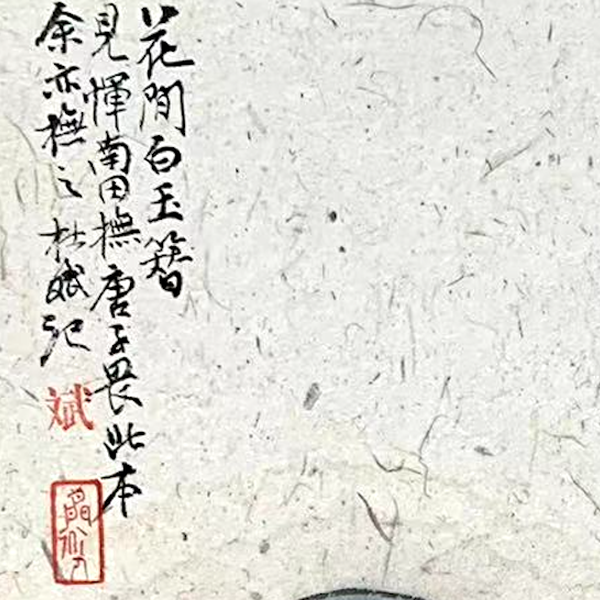 花間白玉簪
見惲南田撫唐子畏此本
余亦撫之 杜斌記
斌